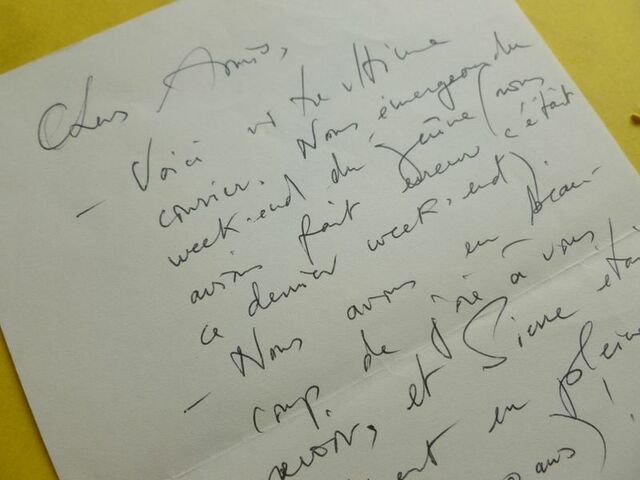 Chers Amis,
- Voici votre ultime
courrier. Nous émergeons du
week-end du jeûne (nous
avions fait erreur c'était
ce dernier week-end).
- Nous avons eu beau-
coup de joie à vous
revoir, et Pierre étai
en pleine
ans) !